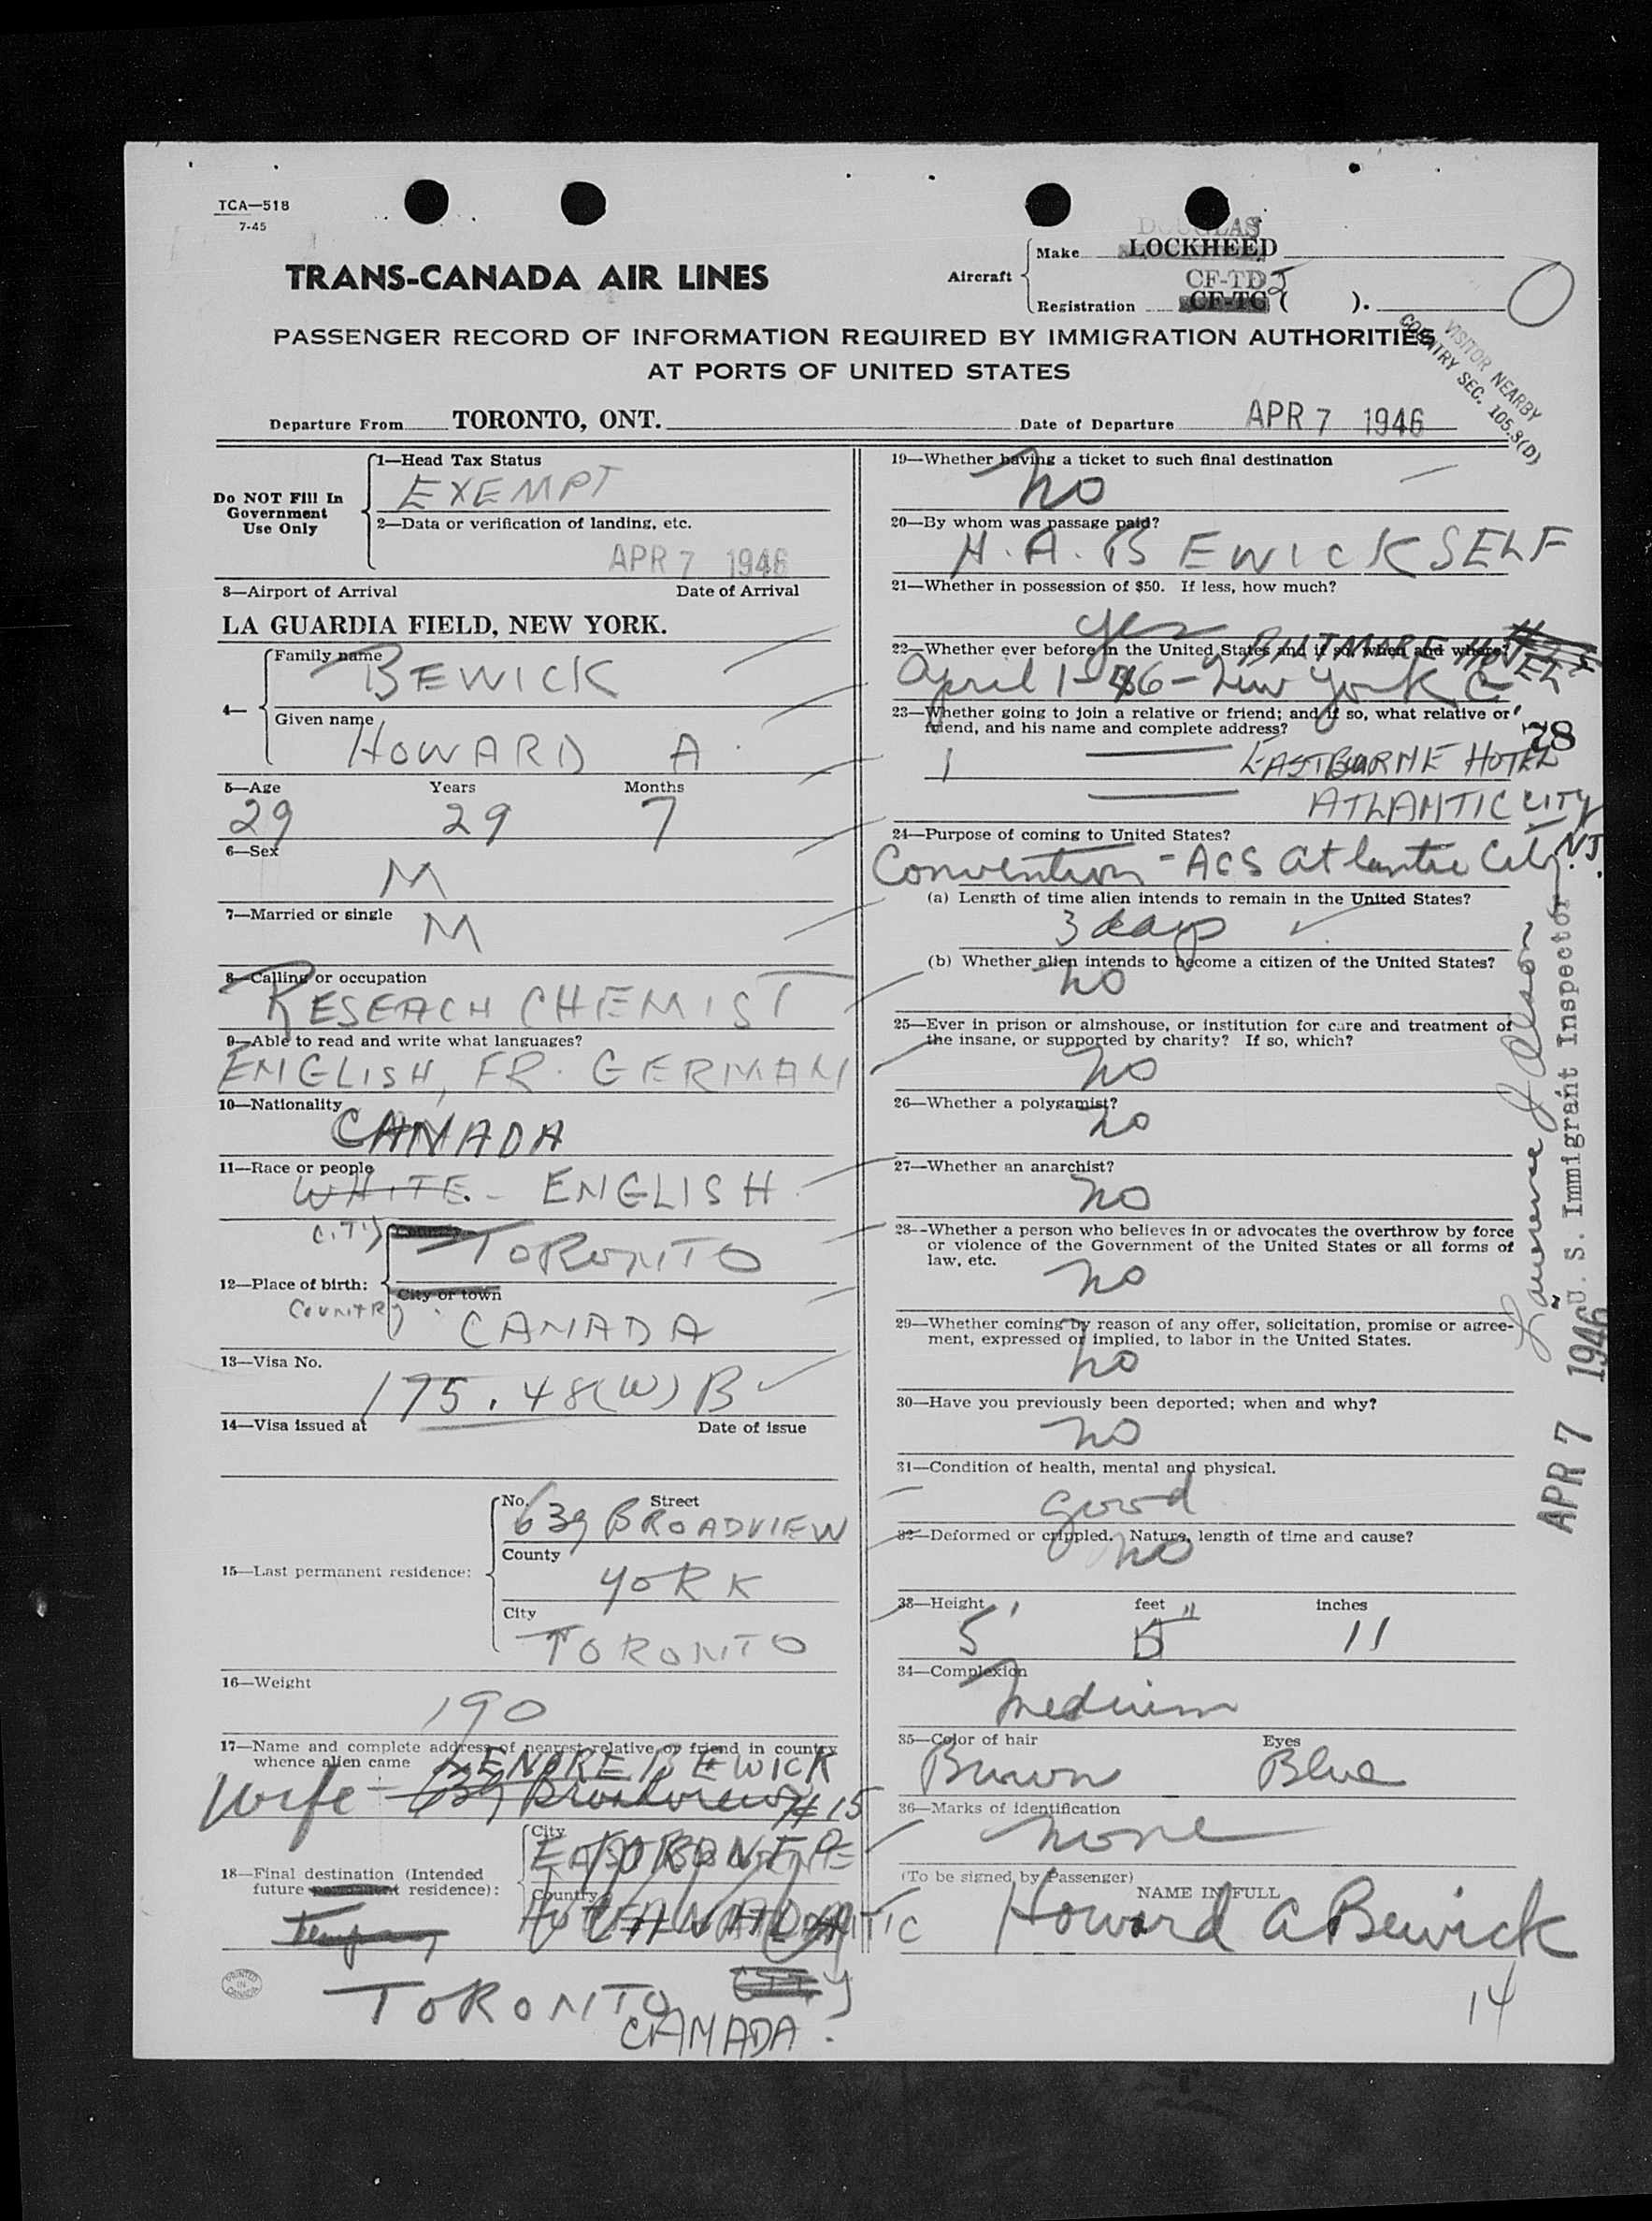 TCA—518
7-45
DOUGLAS
Make LOCKHEED
TRANS-CANADA AIR LINES
Aircraft
CF-TDJ
Registration CF-TG ( ).
O
PASSENGER RECORD OF INFORMATION REQUIRED BY IMMIGRATION AUTHORITIES
AT PORTS OF UNITED STATES
VISITOR NEARBY
COUNTRY SEC. 105.3(D)
Departure From TORONTO, ONT.
Date of Departure APR 7 1946
Do NOT Fill In
Government
Use Only
1—Head Tax Status
EXEMPT
2—Data or verification of landing, etc.
APR 7 1946
3—Airport of Arrival Date of Arrival
LA GUARDIA FIELD, NEW YORK.
4—
Family name
BEWICK
Given name
HOWARD A.
5—Age Years Months
29 29 7
6—Sex
M
7—Married or single
M
8—Calling or occupation
RESEACH CHEMIST
9—Able to read and write what languages?
ENGLISH, FR. GERMAN
10—Nationality
CANADA
11—Race or people
WHITE - ENGLISH
CITY
TORONTO
12—Place of birth:
City or town
COUNTRY
CANADA
13—Visa No.
175.48(W) B
14—Visa issued at Date of issue
15—Last permanent residence:
No. Street
639 BROADVIEW
County
YORK
City
TORONTO
16—Weight
190
17—Name and complete address of nearest relative or friend in country
whence alien came LENORE BEWICK
Wife - 639 Broadview # 15
18—Final destination (Intended
future permanent residence):
City
Country
TORONTO CITY
CANADA.
PRINTED
IN
CANADA
19—Whether having a ticket to such final destination
No
20—By whom was passage paid?
H. A. BEWICK SELF
21—Whether in possession of $50. If less, how much?
yes
22—Whether ever before in the United States and if so, when and where?
BILTMORE HOTEL
April 1-46 - New York C
23—Whether going to join a relative or friend; and if so, what relative or
friend, and his name and complete address?
78
EASTBURNE HOTEL
ATLANTIC CITY
N.J.
24—Purpose of coming to United States?
Convention - ACS Atlantic City
(a) Length of time alien intends to remain in the United States?
3 days
(b) Whether alien intends to become a citizen of the United States?
no
25—Ever in prison or almshouse, or institution for care and treatment of
the insane, or supported by charity? If so, which?
no
26—Whether a polygamist?
no
27—Whether an anarchist?
no
28—Whether a person who believes in or advocates the overthrow by force
or violence of the Government of the United States or all forms of
law, etc.
no
29—Whether coming by reason of any offer, solicitation, promise or agree-
ment, expressed or implied, to labor in the United States.
no
30—Have you previously been deported; when and why?
no
31—Condition of health, mental and physical.
good
32—Deformed or crippled. Nature, length of time and cause?
no
33—Height feet inches
5' 5" 11
34—Complexion
Medium
35—Color of hair Eyes
Brown Blue
36—Marks of identification
none
(To be signed by Passenger)
NAME IN FULL
Howard A Bewick
14
Lawrence J Olson
U. S. Immigrant Inspector
APR 7 1946